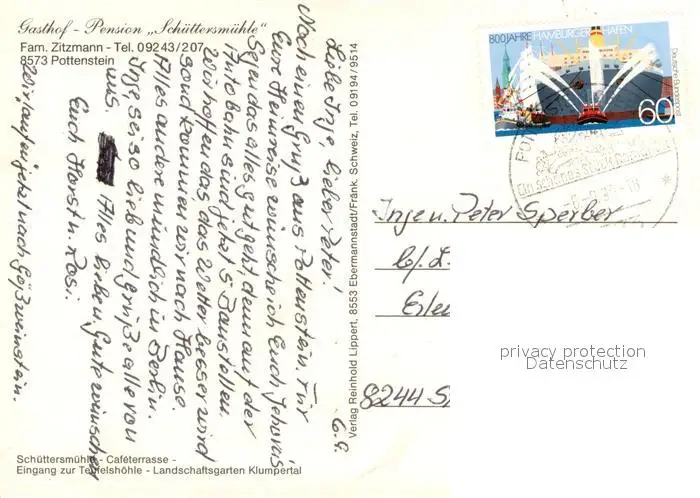 Gasthof - Pension „Schüttersmühle"
Fam. Zitzmann - Tel. 09243/207
8573 Pottenstein
6.9.
Liebe Inge, lieber Peter!
Noch einen Gruß aus Pottenstein. Für
Eure Heimreise wünsche ich Euch
Segen das alles gut geht, denn auf der
Autobahn sind jetzt 5 Baustellen.
Wir hoffen das das Wetter besser wird
sonst kommen wir nach Hause.
Alles andere mündlich in Berlin.
Inge sei so lieb und grüße alle von
uns. Alles liebe u. Gute wünschen
Euch Horst u. Rosi.
Wir laufen jetzt nach Gößweinstein.
Schüttersmühle - Caféterrasse -
Eingang zur Teufelshöhle - Landschaftsgarten Klumpertal
Verlag Reinhold Lippert, 8553 Ebermannstadt/Fränk. Schweiz, Tel. 09194/9514
800 JAHRE HAMBURGER HAFEN
Deutsche Bundespost
60
Inge u. Peter Sperber
b/L.
Erle
8244 S
privacy protection
Datenschutz